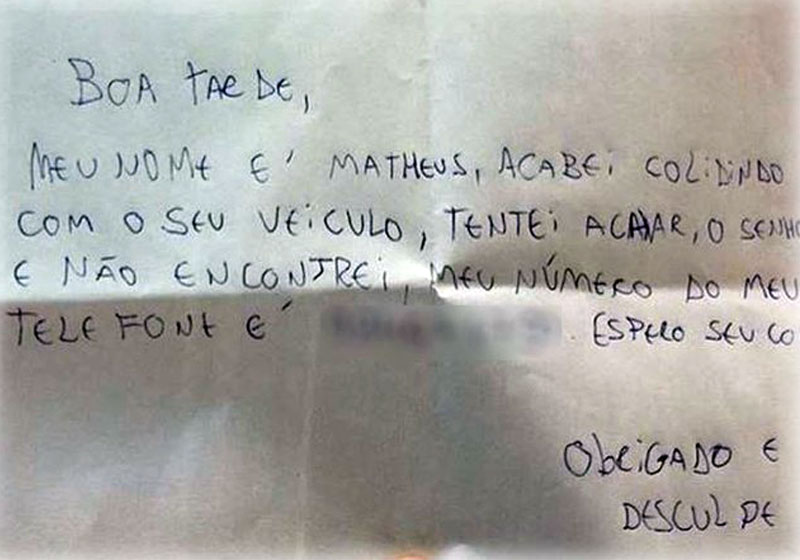 BOA TARDE,
MEU NOME E' MATHEUS, ACABEI COLIDINDO
COM O SEU VEICULO, TENTEI ACHAR, O SENHO
E NÃO ENCONTREI, MEU NÚMERO DO MEU
TELEFONE E' . ESPERO SEU CO
ObRiGADO E
DESCULPE